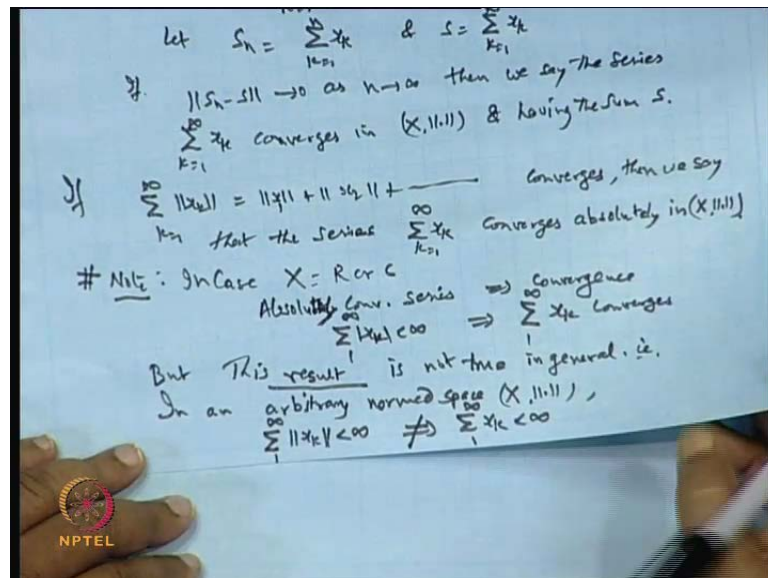 Let Sn = ∑_{k=1}^{n} xk & S = ∑_{k=1}^{∞} xk
If ||Sn - S|| → 0 as n → ∞ then we say the series
∑_{k=1}^{∞} xk converges in (X, ||.||) & having the sum S.
If ∑_{k=1}^{∞} ||xk|| = ||x1|| + ||x2|| + ——— converges, then we say
that the series ∑_{k=1}^{∞} xk converges absolutely in (X, ||.||)
# Note: In Case X = R or C
Absolutely conv. series ⇒ convergence
∑_{1}^{∞} |xk| < ∞ ⇒ ∑_{1}^{∞} xk converges
But This result is not true in general. i.e.
In an arbitrary normed space (X, ||.||),
∑_{1}^{∞} ||xk|| < ∞ ⇏ ∑_{1}^{∞} xk < ∞
NPTEL